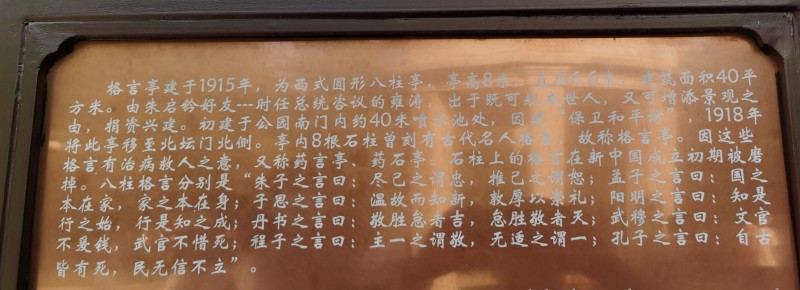 格言亭建于1915年，为西式圆形八柱亭，亭高8米，建筑面积40平
方米。由朱启钤好友---时任总统咨议的雍涛，出于既可教世人，又可增添景观之
由，捐资兴建。初建于公园南门内约40米喷水池处，因建“保卫和平坊”，1918年
将此亭移至北坛门北侧。亭内8根石柱曾刻有古代名人格言，故称格言亭。因这些
格言有治病救人之意，又称药言亭、药石亭。石柱上的格言在新中国成立初期被磨
掉。八柱格言分别是“朱子之言曰：尽己之谓忠，推己之谓恕；孟子之言曰：国之
本在家，家之本在身；子思之言曰：温故而知新，敦厚以崇礼；阳明之言曰：知是
行之始，行是知之成；丹书之言曰：敬胜怠者吉，怠胜敬者灭；武穆之言曰：文官
不爱钱，武官不惜死；程子之言曰：主一之谓敬，无适之谓一；孔子之言曰：自古
皆有死，民无信不立”。